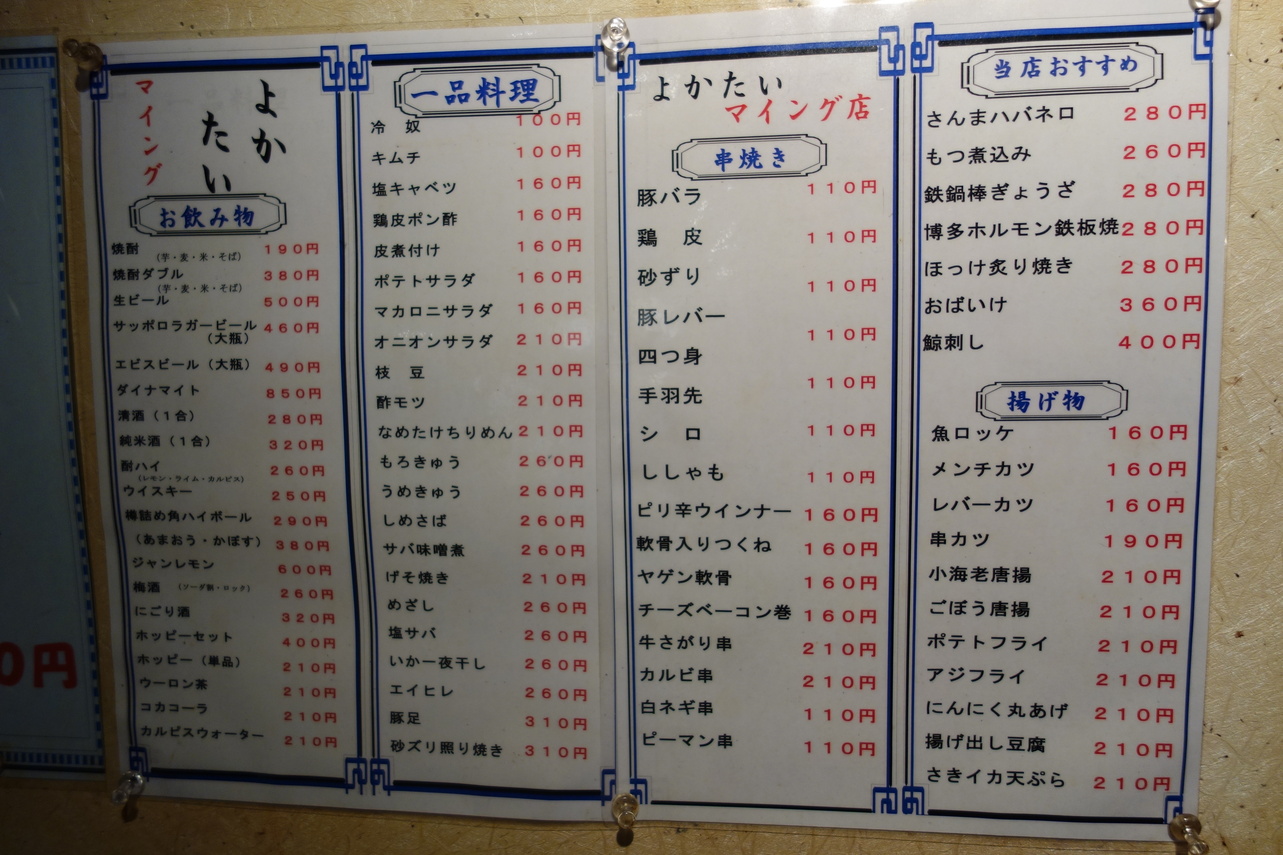 よかたい
マイング
お飲み物
焼酎 190円
(芋・麦・米・そば)
焼酎ダブル 380円
(芋・麦・米・そば)
生ビール 500円
サッポロラガービール 460円
(大瓶)
エビスビール(大瓶) 490円
ダイナマイト 850円
清酒(1合) 280円
純米酒(1合) 320円
酎ハイ 260円
(レモン・ライム・カルピス)
ウイスキー 250円
樽詰め角ハイボール 290円
(あまおう・かぼす) 380円
ジャンレモン 600円
梅酒 (ソーダ割・ロック) 260円
にごり酒 320円
ホッピーセット 400円
ホッピー(単品) 210円
ウーロン茶 210円
コカコーラ 210円
カルピスウォーター 210円
一品料理
冷 奴 100円
キムチ 100円
塩キャベツ 160円
鶏皮ポン酢 160円
皮煮付け 160円
ポテトサラダ 160円
マカロニサラダ 160円
オニオンサラダ 210円
枝 豆 210円
酢モツ 210円
なめたけちりめん 210円
もろきゅう 260円
うめきゅう 260円
しめさば 260円
サバ味噌煮 260円
げそ焼き 210円
めざし 260円
塩サバ 260円
いか一夜干し 260円
エイヒレ 260円
豚足 310円
砂ズリ照り焼き 310円
よかたい
マイング店
串焼き
豚バラ 110円
鶏 皮 110円
砂ずり 110円
豚レバー 110円
四つ身 110円
手羽先 110円
シ ロ 110円
ししゃも 110円
ピリ辛ウインナー 160円
軟骨入りつくね 160円
ヤゲン軟骨 160円
チーズベーコン巻 160円
牛さがり串 210円
カルビ串 210円
白ネギ串 110円
ピーマン串 110円
当店おすすめ
さんまハバネロ 280円
もつ煮込み 260円
鉄鍋棒ぎょうざ 280円
博多ホルモン鉄板焼 280円
ほっけ炙り焼き 280円
おばいけ 360円
鯨刺し 400円
揚げ物
魚ロッケ 160円
メンチカツ 160円
レバーカツ 160円
串カツ 190円
小海老唐揚 210円
ごぼう唐揚 210円
ポテトフライ 210円
アジフライ 210円
にんにく丸あげ 210円
揚げ出し豆腐 210円
さきイカ天ぷら 210円
0円